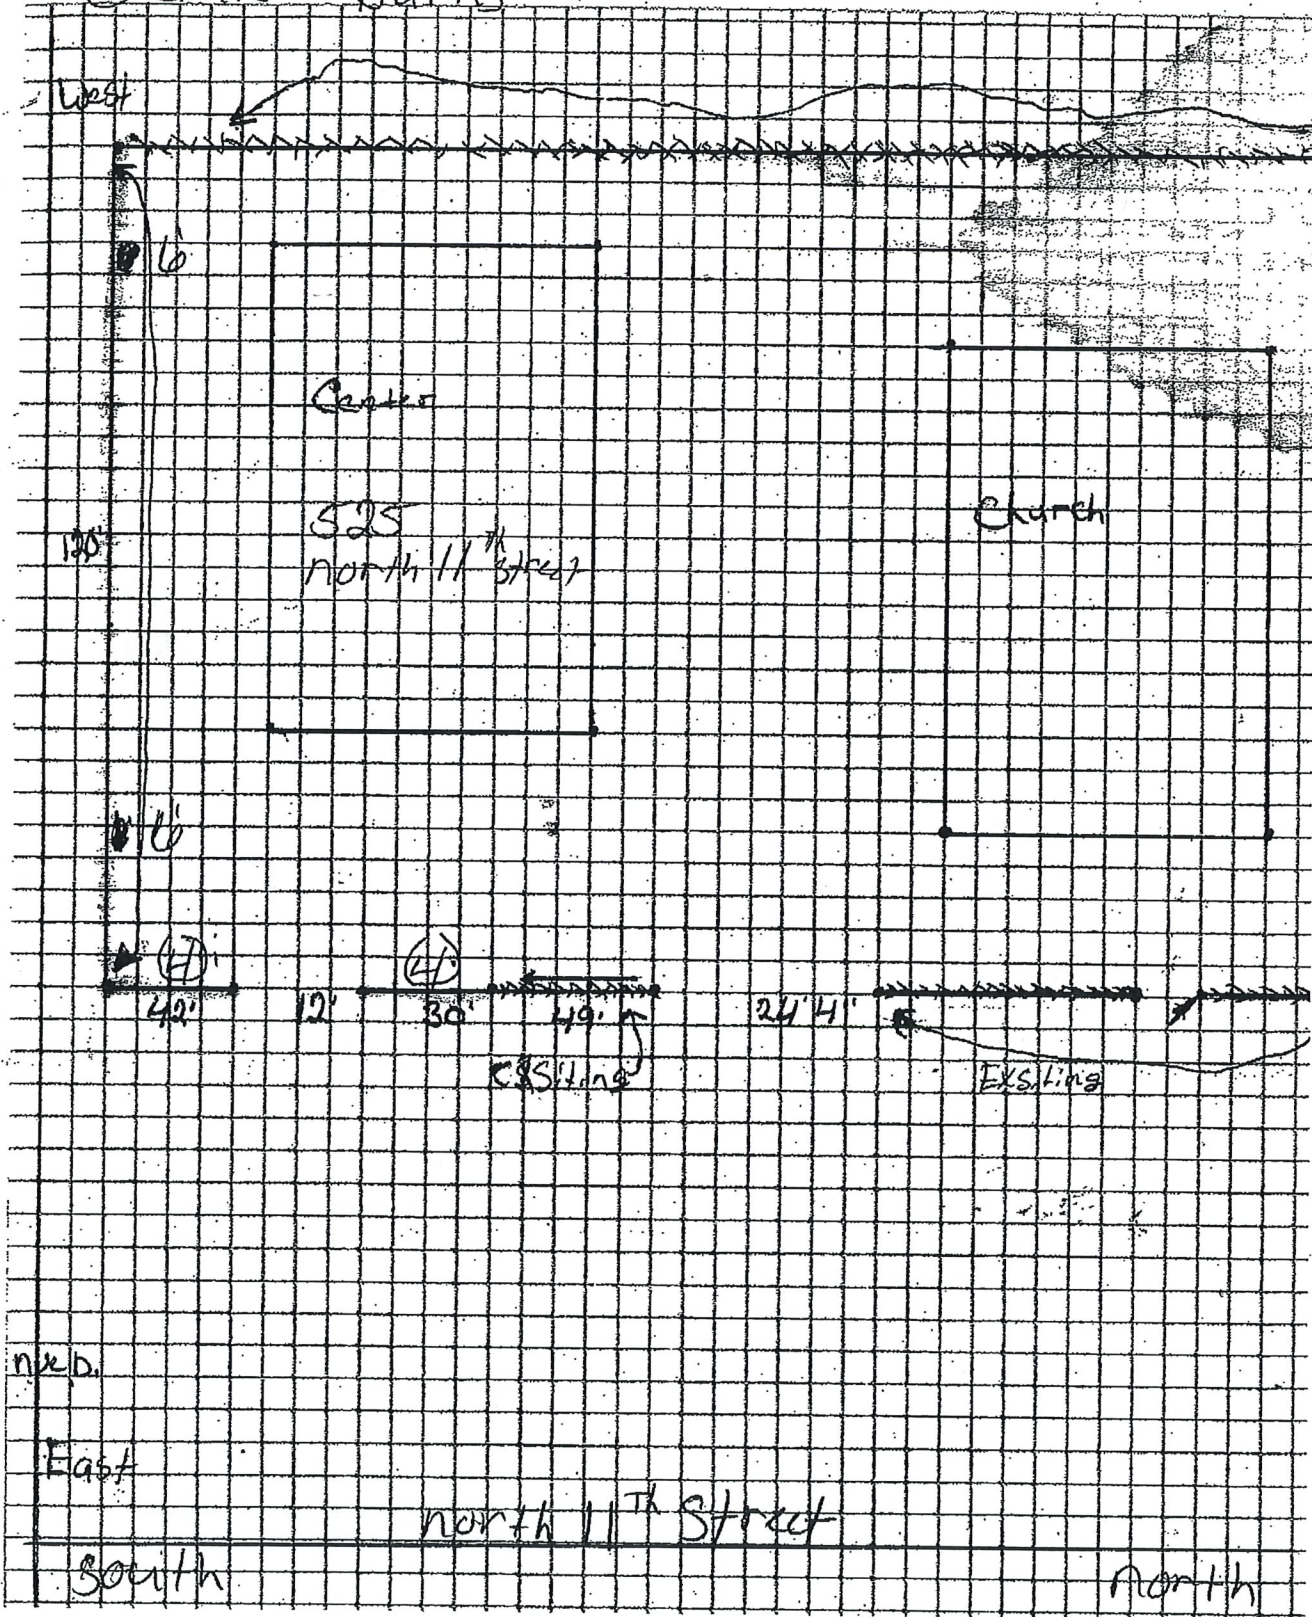 West
6'
Center
525
north 11th Street
Church
120'
6'
4'
4'
42'
12'
30'
49'
24' 4"
Exsiting
East
north 11th Street
south
north